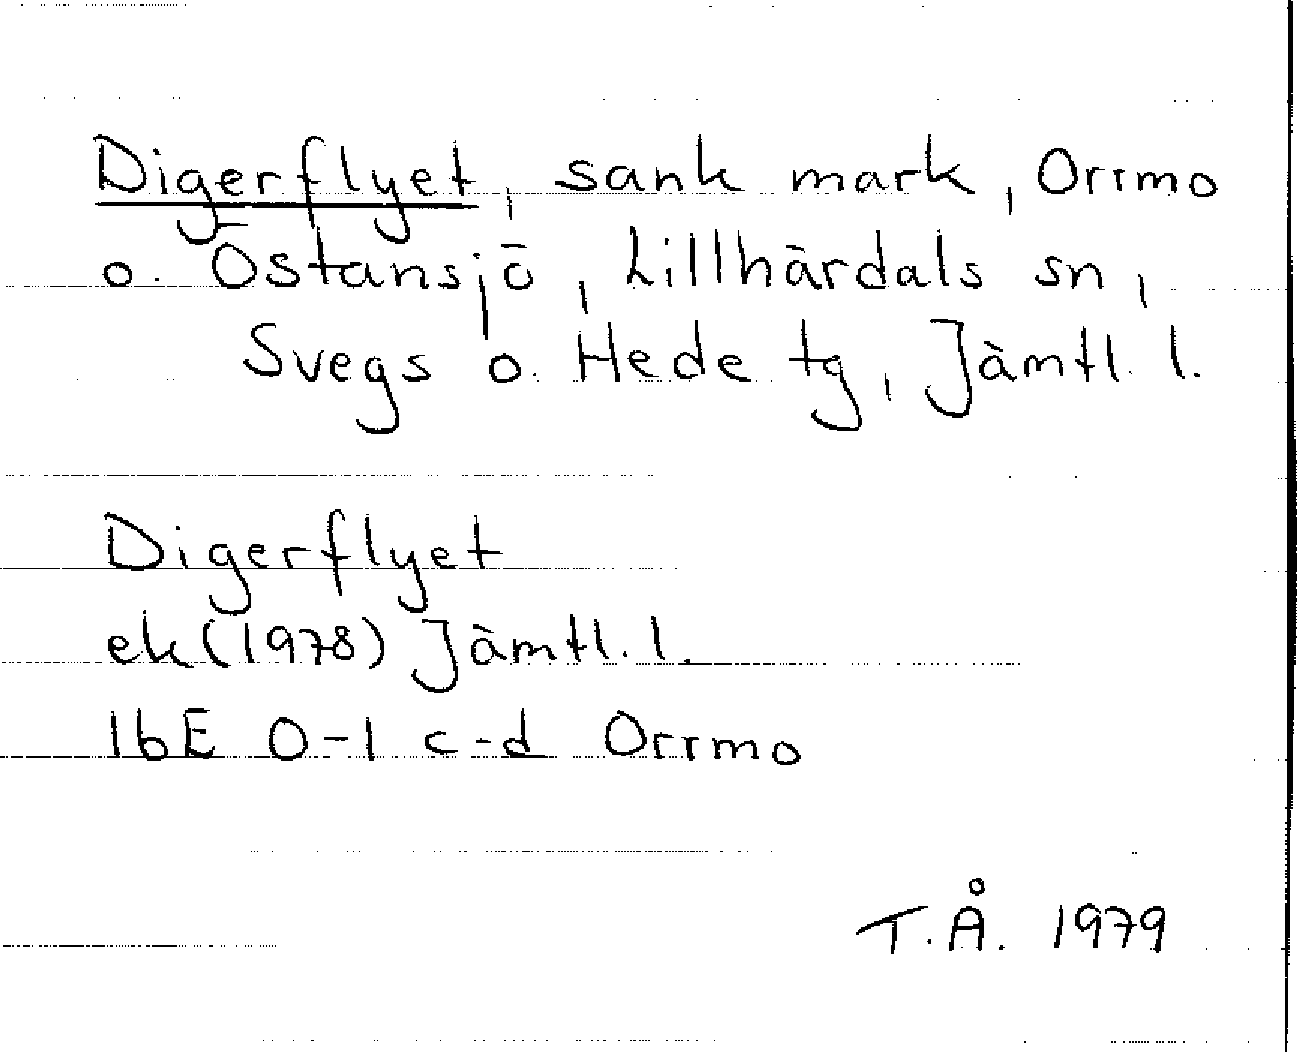 Digerflyet, sank mark, Orrmo
o. Östansjö, Lillhärdals sn,
Svegs o. Hede tg, Jämtl. l.
Digerflyet
ek(1978) Jämtl. l.
16E 0-1 c-d Orrmo
T.Å. 1979